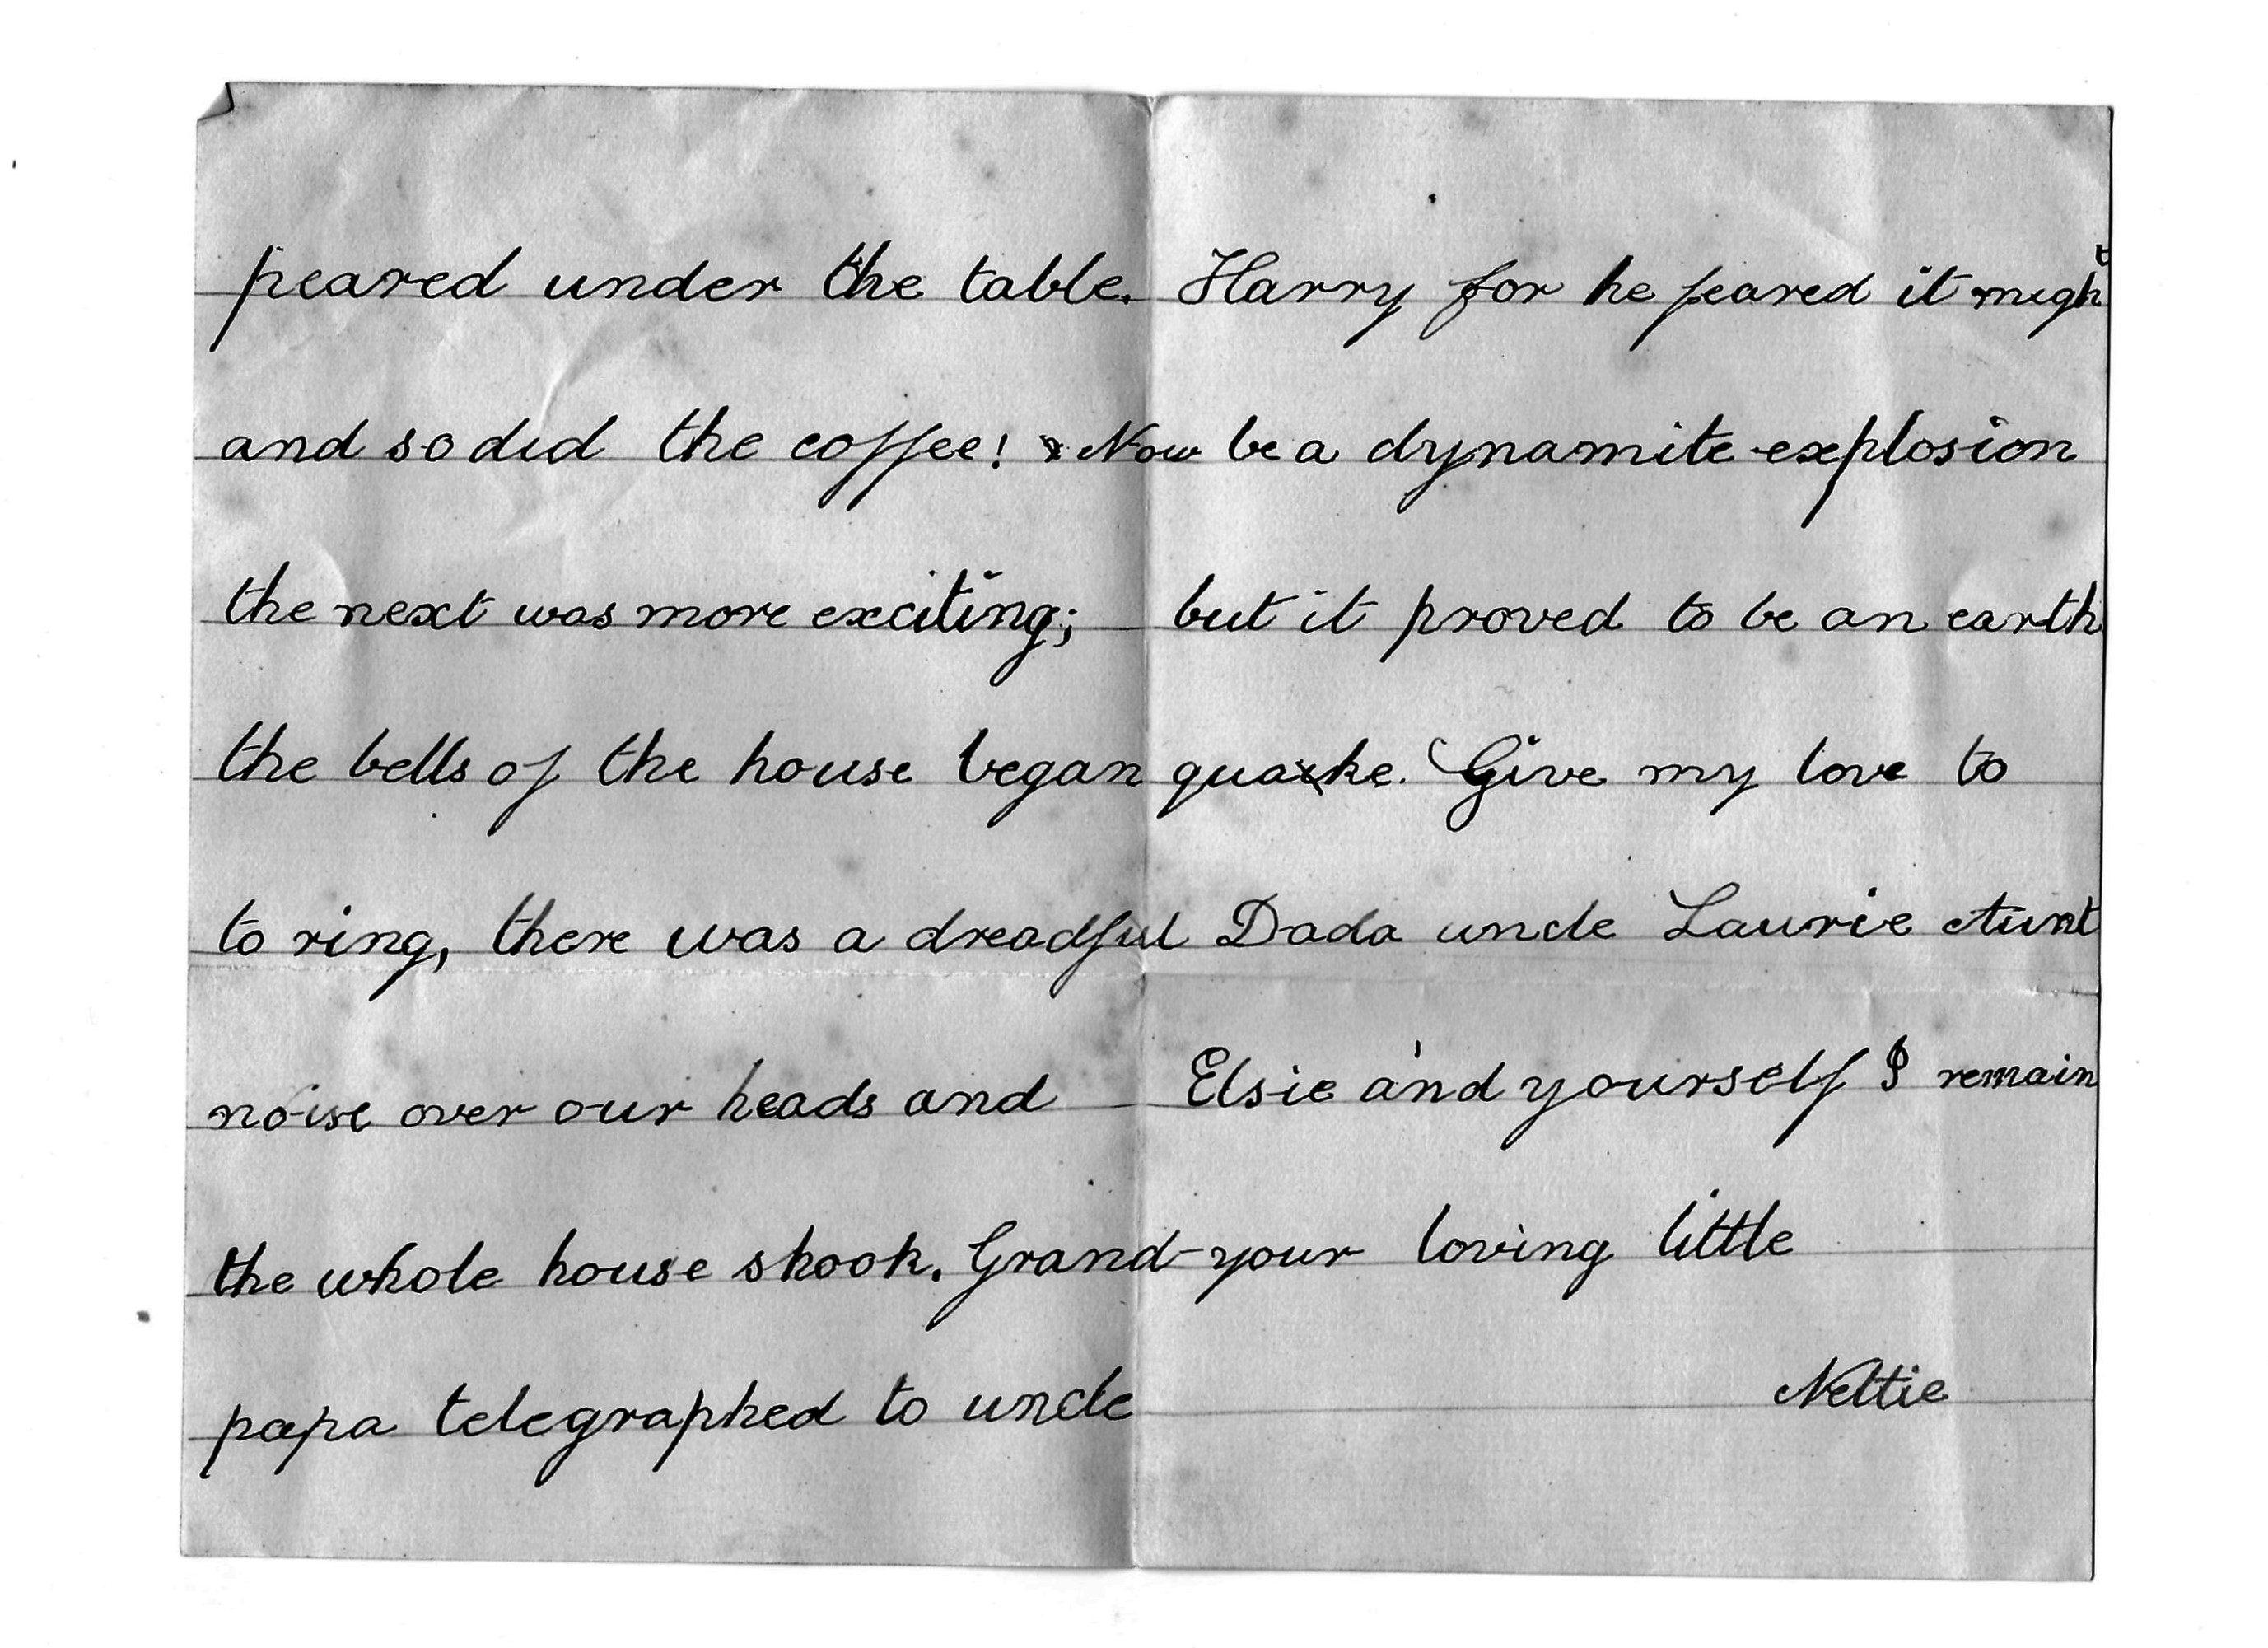 peared under the table.
and so did the coffee! Now
the next was more exciting;
the bells of the house began
to ring, there was a dreadful
noise over our heads and
the whole house shook. Grand-
papa telegraphed to uncle
Harry for he feared it might
be a dynamite explosion
but it proved to be an earth
quake. Give my love to
Dada uncle Laurie Aunt
Elsie and yourself I remain
your loving little
Nettie